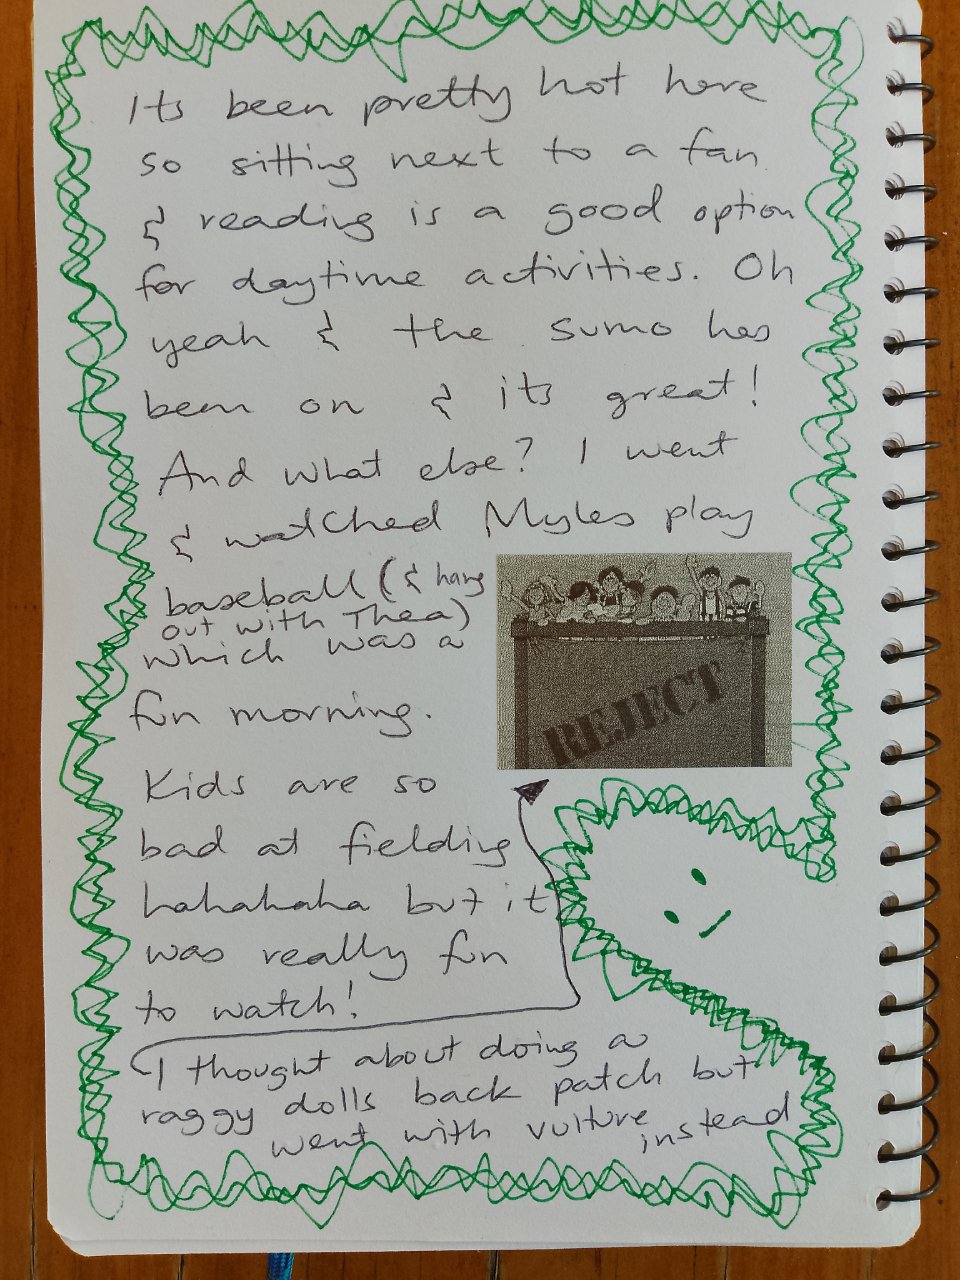 Its been pretty hot here
so sitting next to a fan
& reading is a good option
for daytime activities. Oh
yeah & the sumo has
been on & its great!
And what else? I went
& watched Myles play
baseball (& hang
out with Thea)
which was a
fun morning.
REJECT
Kids are so
bad at fielding
hahahaha but it
was really fun
to watch!
I thought about doing a
raggy dolls back patch but
went with vulture instead